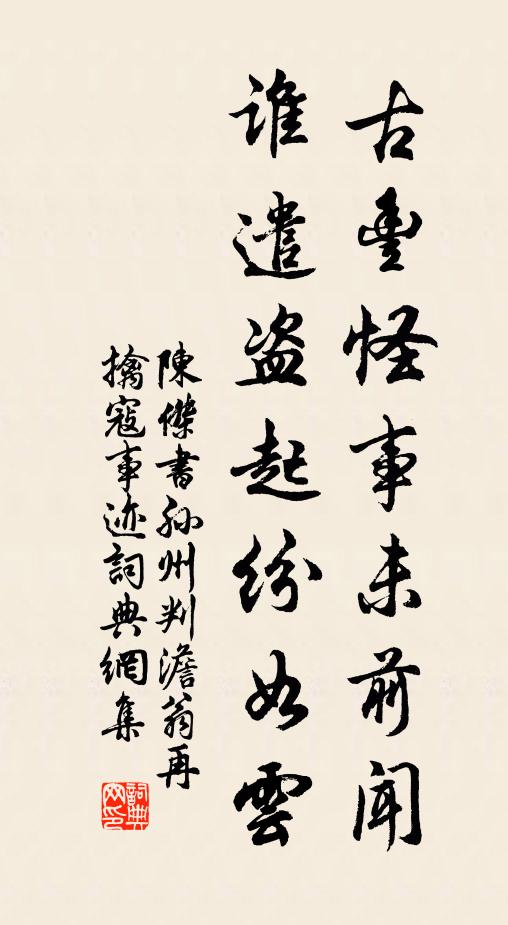 古豐怪事未前聞
誰遣盗起紛如雲
陳傑書孙州判澹翁再
擒寇事迹詞典網集
詞典网印